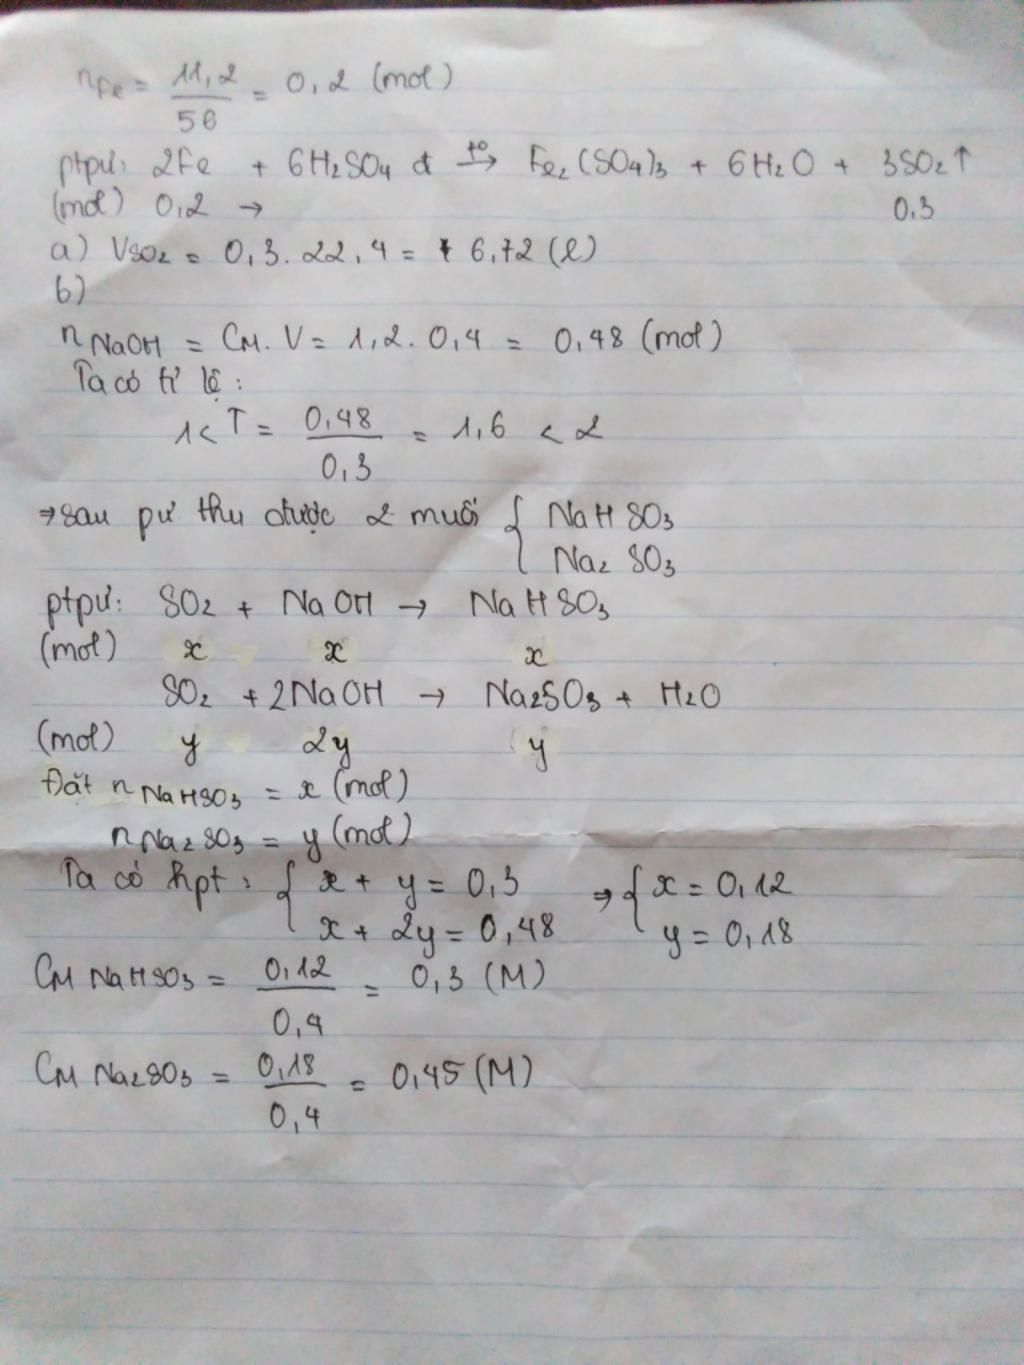 nFe = 11,2/56 = 0,2 (mol)
ptpư: 2Fe + 6H2SO4 đ t°→ Fe2(SO4)3 + 6H2O + 3SO2↑
(mol) 0,2 → 0,3
a) VSO2 = 0,3.22,4 = 6,72 (l)
b)
nNaOH = CM.V = 1,2.0,4 = 0,48 (mol)
Ta có tỉ lệ:
1< T = 0,48/0,3 = 1,6 < 2
⇒ sau pư thu được 2 muối { NaHSO3
Na2SO3
ptpư: SO2 + NaOH → NaHSO3
(mol) x x x
SO2 + 2NaOH → Na2SO3 + H2O
(mol) y 2y y
Đặt nNaHSO3 = x (mol)
nNa2SO3 = y (mol)
Ta có hpt: { x + y = 0,3 ⇒ { x = 0,12
x + 2y = 0,48 y = 0,18
CM NaHSO3 = 0,12/0,4 = 0,3 (M)
CM Na2SO3 = 0,18/0,4 = 0,45 (M)